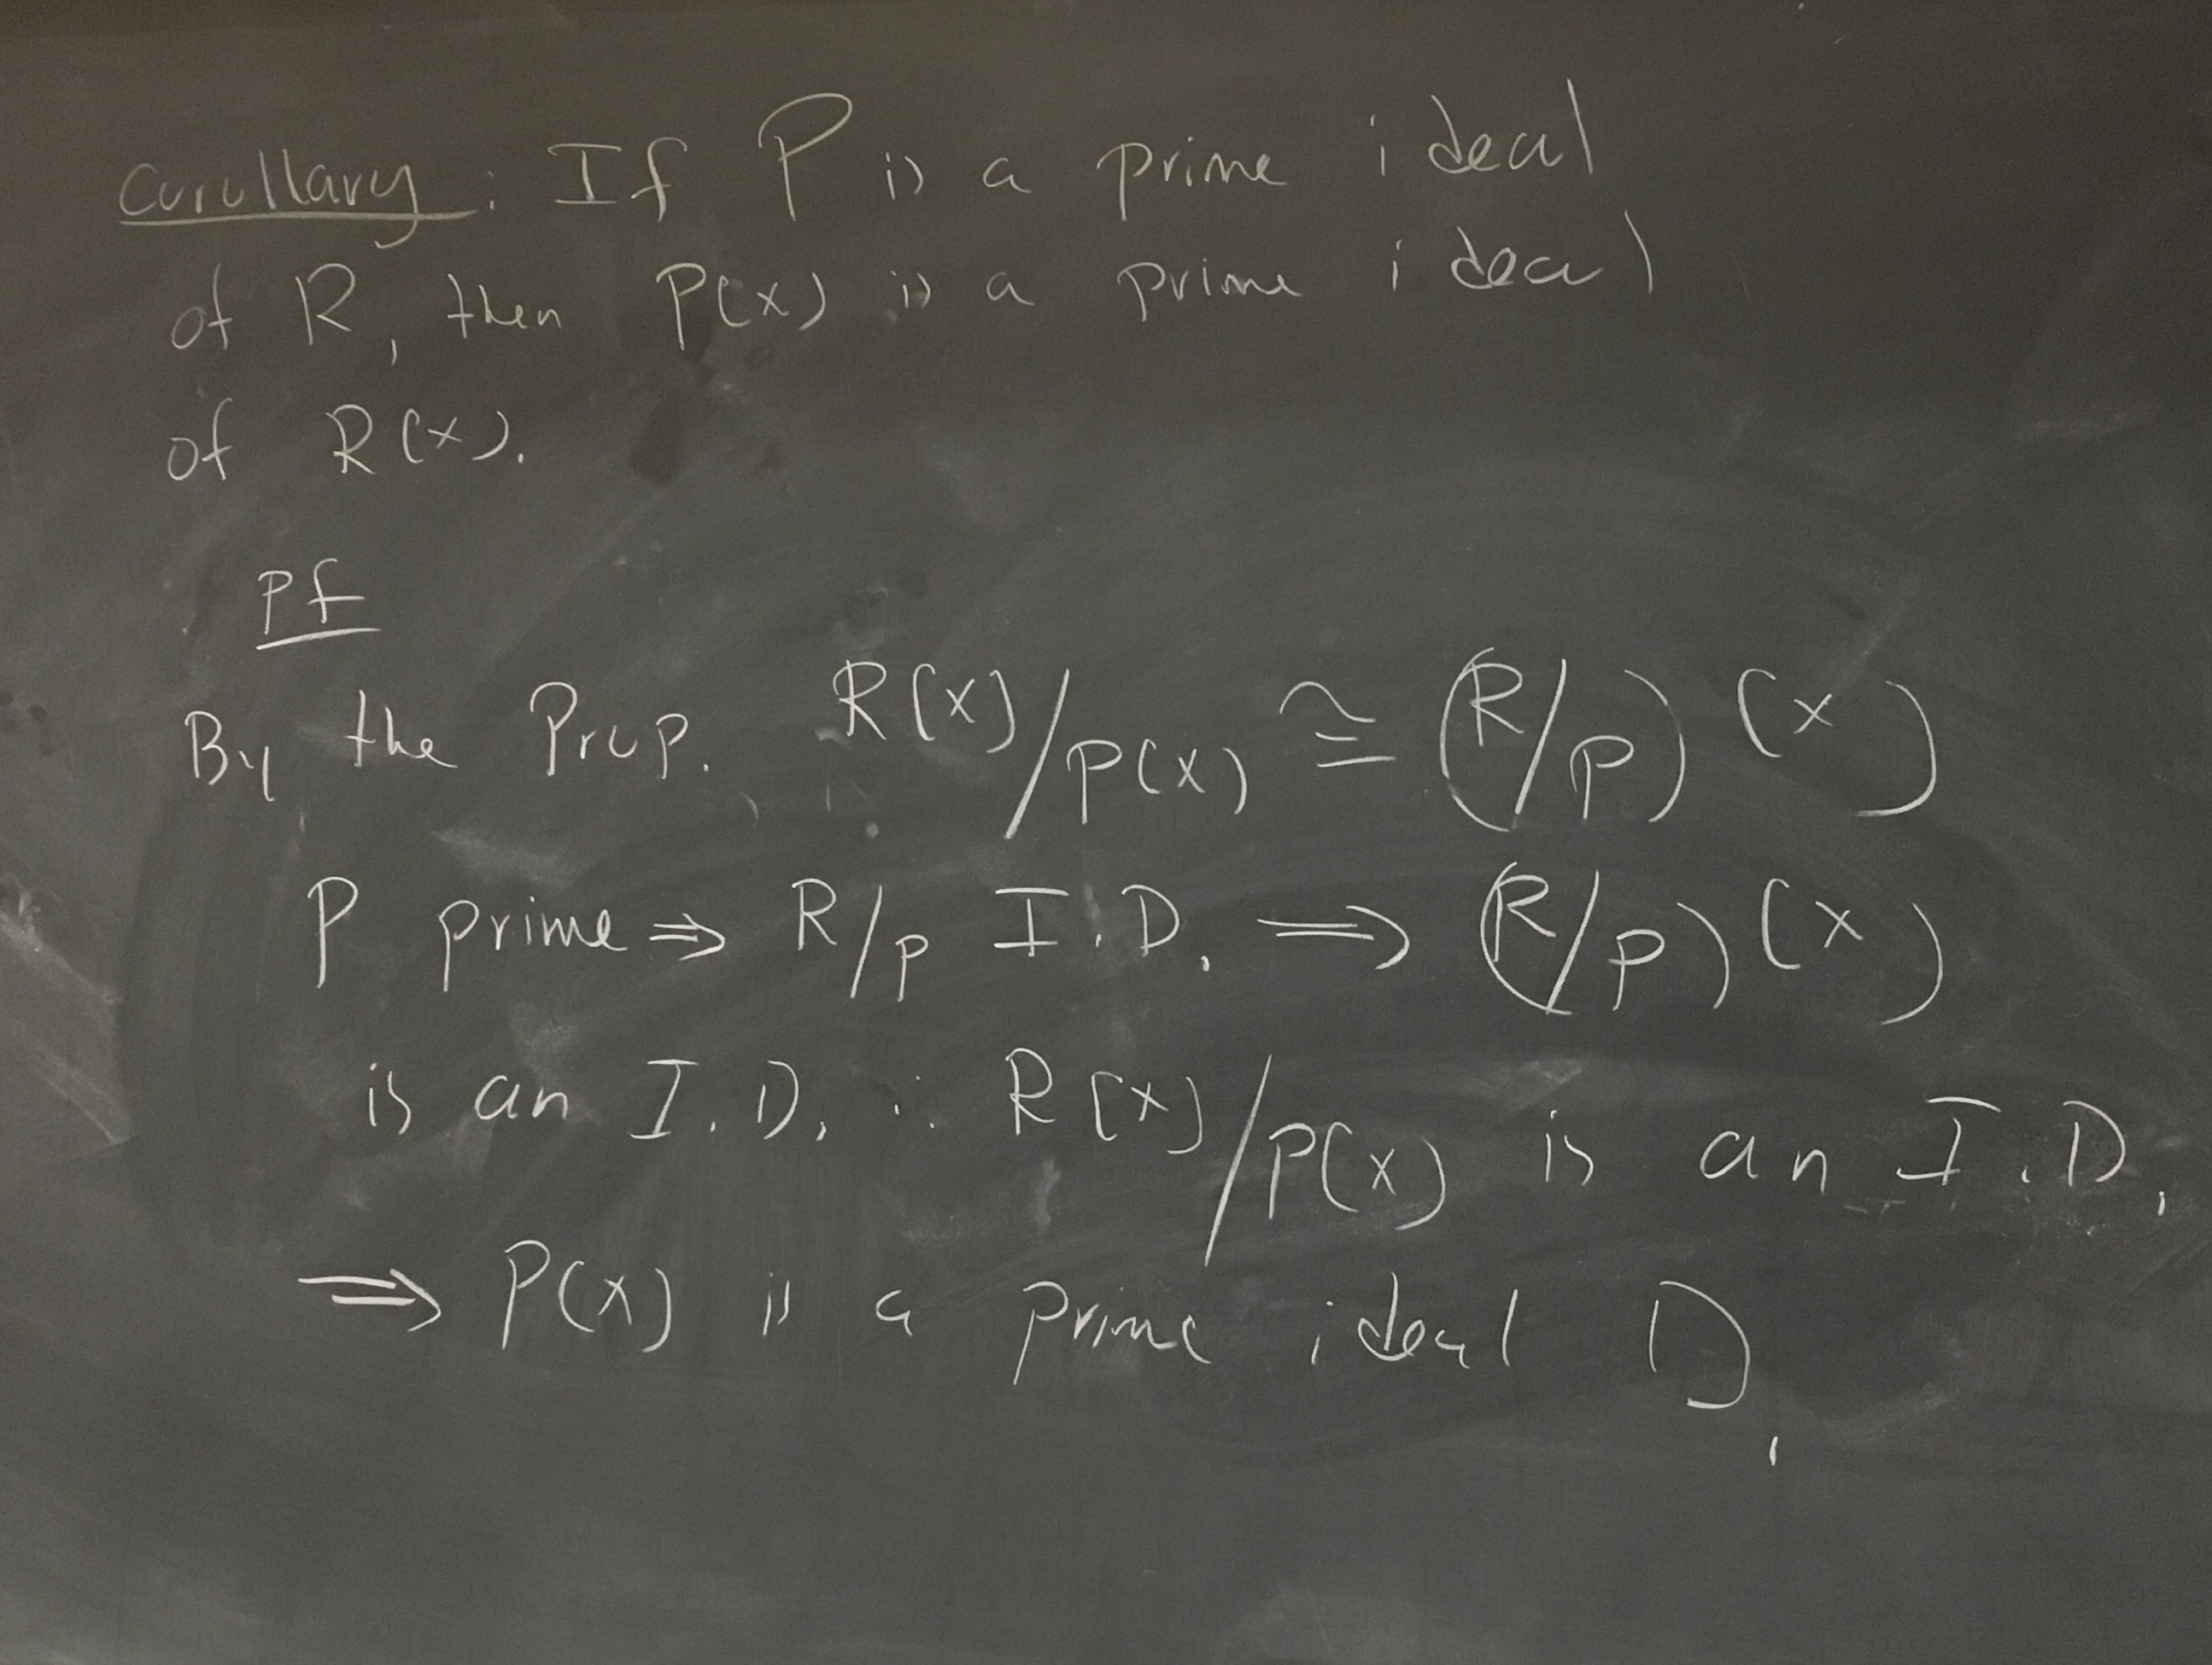 Corollary: If P is a prime ideal
of R, then P[x] is a prime ideal
of R[x].
pf
By the Prop. R[x]/P[x] ≅ (R/P)[x]
P prime ⇒ R/P I.D. ⇒ (R/P)[x]
is an I.D. ∴ R[x]/P[x] is an I.D.
⇒ P[x] is a prime ideal □.